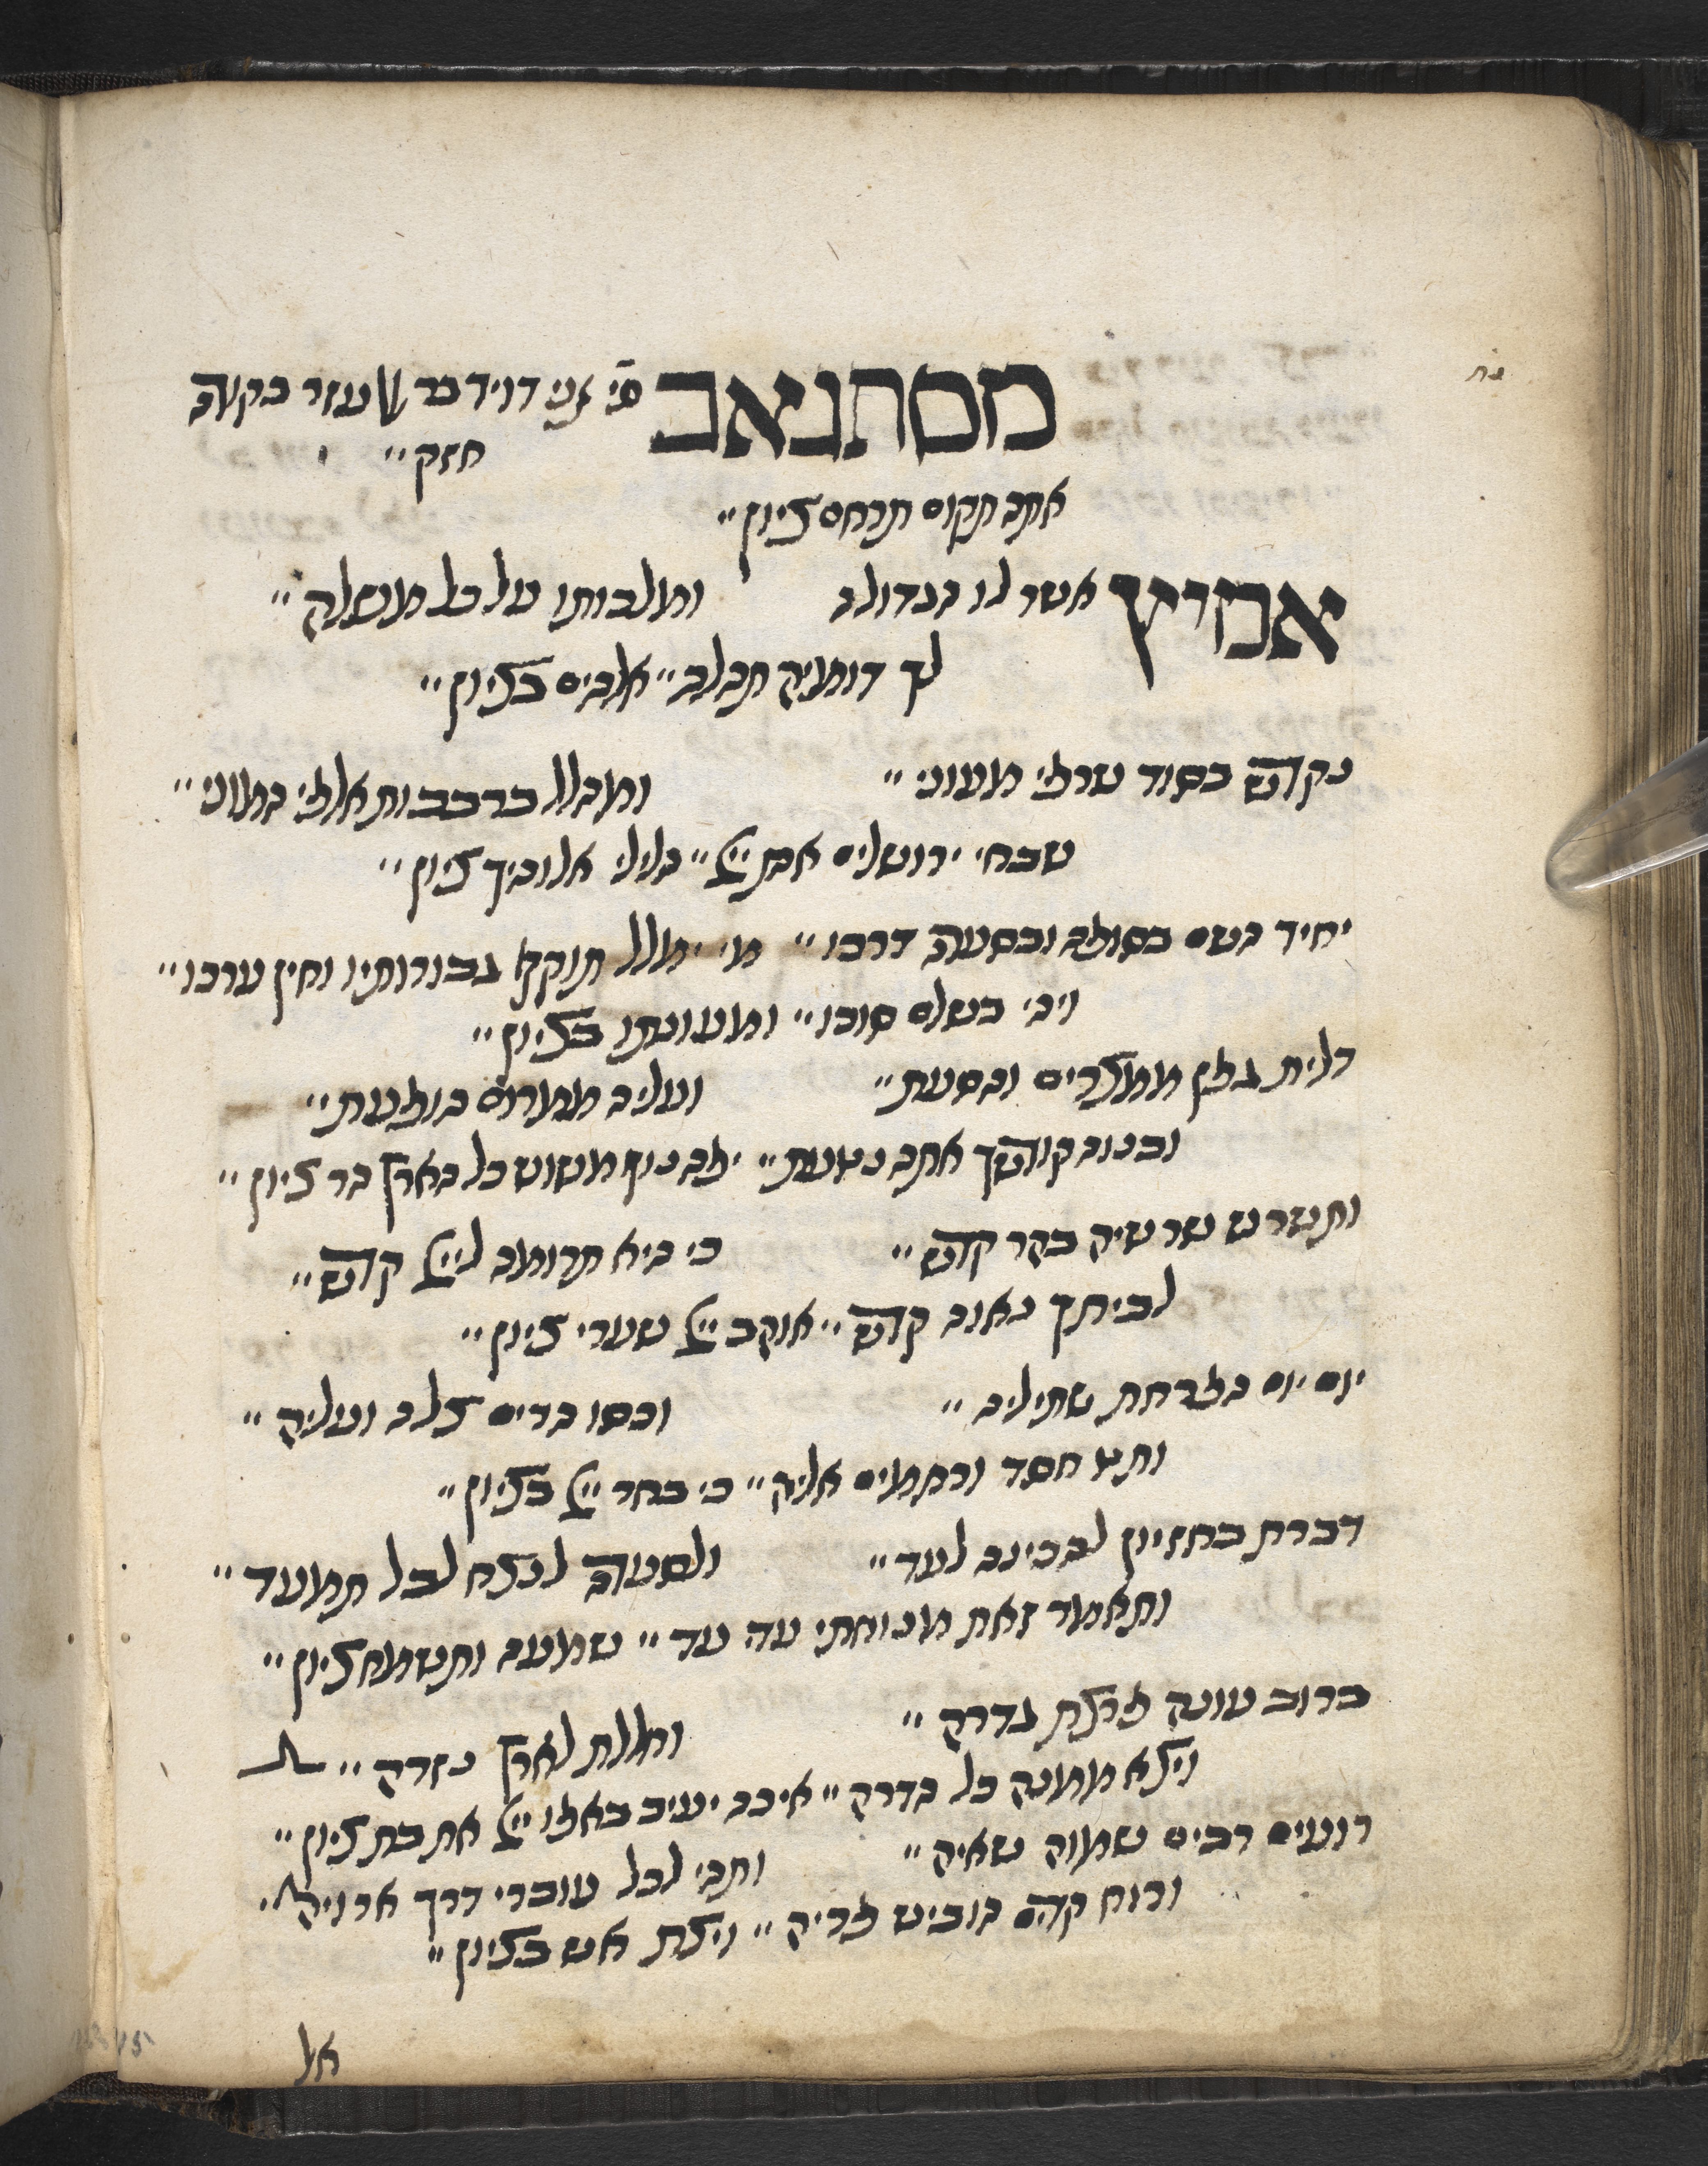 נח
מסתגאב סי' אני דויד בר אלעזר בקודה
חזק"
אתה תקום תרחם ציון"
אמריץ אשר לו הגדולה ומלכותו על כל משלה"
לך דומיה תהלה" אלהים בציון"
נקדש בסוד שרפי מעוני" ומהלל ברכבות אלפי המוני"
שבחי ירושלים את ייי" הללי אלוהיך ציון"
יחיד בשם בסופה ובסערה דרכו" מי ימלל תוקף גבורותיו וחין ערכו"
ויהי בשלם סוכו" ומעונתו בציון"
דלית גפן ממצרים והסעת" ועליה ממרום הופעת"
ובנוה קודשך אתה נטעת" יפה נוף משוש כל הארץ הר ציון"
ותשרש שרשיה בהר קדש" כי היא תרומה לייי קדש"
לביתך נאוה קדש" אוהב ייי שערי ציון"
יום יום הפרחת שתיליה" וכסו הרים צלה ועליה"
ותט חסד ורחמים אליה" כי בחר ייי בציון"
דברת בחזיון להכינה לעד" ולסעדה לנצח לבל תמעד"
ותאמר זאת מנוחתי עדי עד" שמעה ותשמח ציון"
ברוב עונה פרצת גדרה" וחללת לארץ נזרה"
ויצא ממנה כל הדרה" איכה יעיב באפו ייי את בת ציון"
רועים רבים שמוה שאיה" ותהי לכל עוברי דרך ארויה"
ורוח קדם הוביש פריה" ויצת אש בציון"
אל